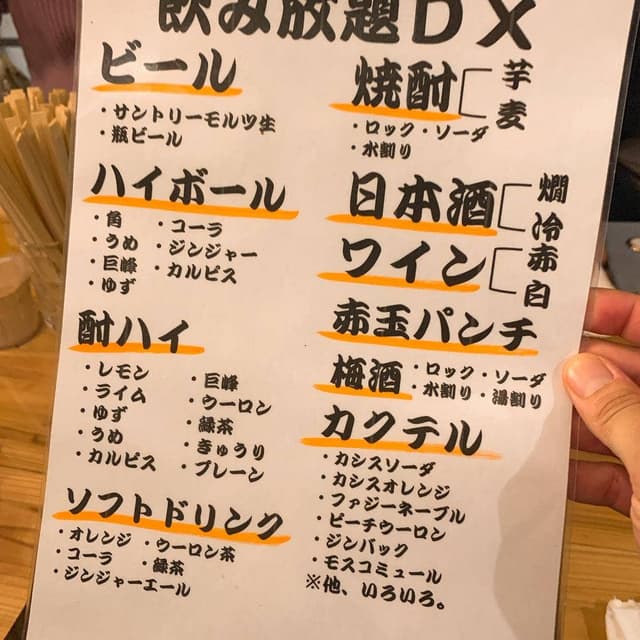 飲み放題DX
ビール
・サントリーモルツ生
・瓶ビール
ハイボール
・角 ・コーラ
・うめ ・ジンジャー
・巨峰 ・カルピス
・ゆず
酎ハイ
・レモン ・巨峰
・ライム ・ウーロン
・ゆず ・緑茶
・うめ ・きゅうり
・カルピス ・プレーン
ソフトドリンク
・オレンジ ・ウーロン茶
・コーラ ・緑茶
・ジンジャーエール
焼酎 芋 麦
・ロック・ソーダ
・水割り
日本酒 燗 冷
ワイン 赤 白
赤玉パンチ
梅酒 ・ロック・ソーダ
・水割り・湯割り
カクテル
・カシスソーダ
・カシスオレンジ
・ファジーネーブル
・ピーチウーロン
・ジンバック
・モスコミュール
※他、いろいろ。